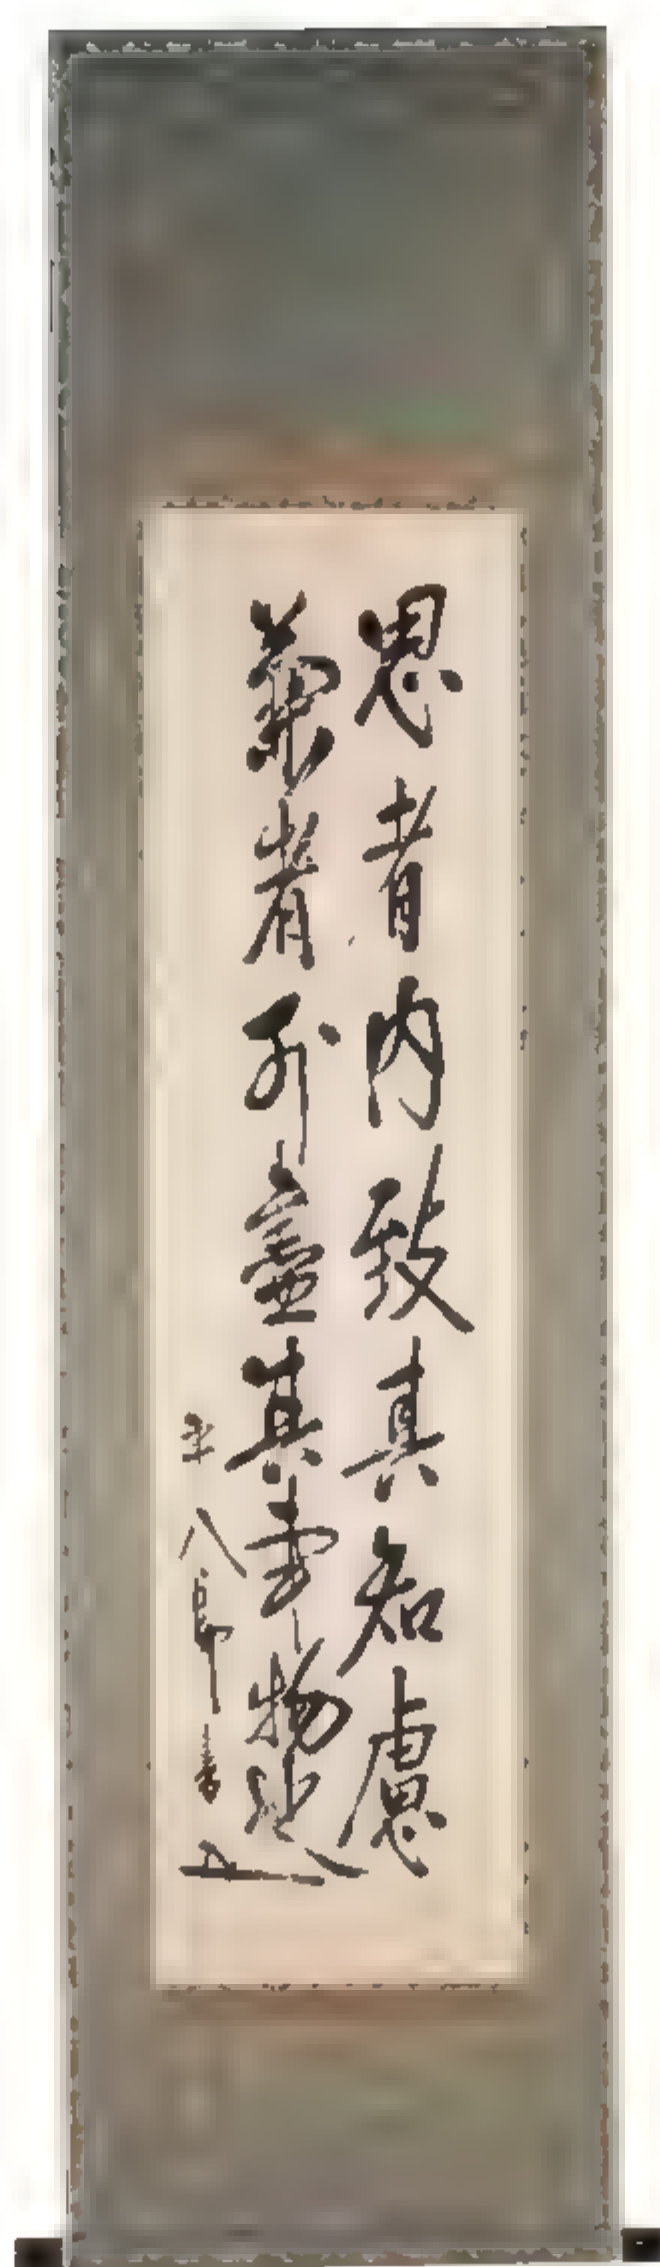 思者内致真知慮
者外盡其事物
平八郎書